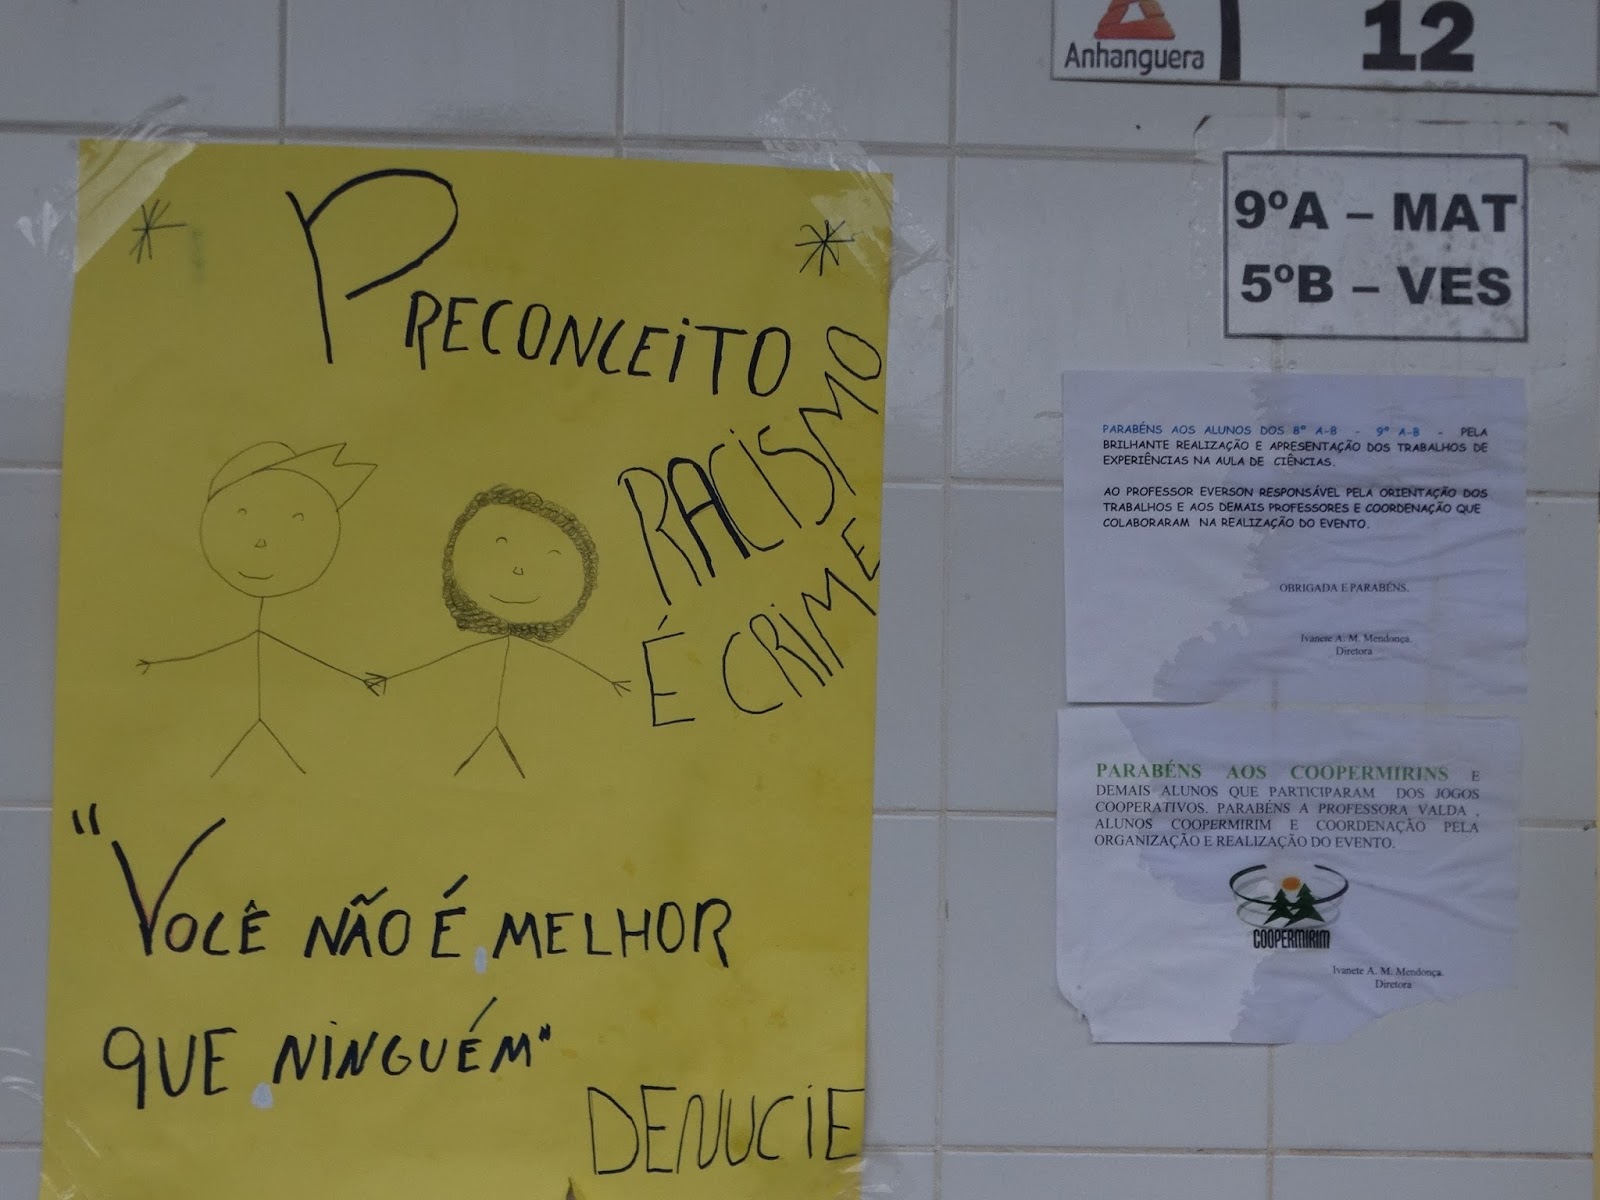 PRECONCEITO
RACISMO
É CRIME
"VOCÊ NÃO É MELHOR
QUE NINGUÉM"
DENUCIE
Anhanguera
12
9ºA – MAT
5ºB – VES
PARABÉNS AOS ALUNOS DOS 8º A-B - 9º A-B - PELA
BRILHANTE REALIZAÇÃO E APRESENTAÇÃO DOS TRABALHOS DE
EXPERIÊNCIAS NA AULA DE CIÊNCIAS.
AO PROFESSOR EVERSON RESPONSÁVEL PELA ORIENTAÇÃO DOS
TRABALHOS E AOS DEMAIS PROFESSORES E COORDENAÇÃO QUE
COLABORARAM NA REALIZAÇÃO DO EVENTO.
OBRIGADA E PARABÉNS.
Ivanete A. M. Mendonça.
Diretora
PARABÉNS AOS COOPERMIRINS E
DEMAIS ALUNOS QUE PARTICIPARAM DOS JOGOS
COOPERATIVOS. PARABÉNS A PROFESSORA VALDA ,
ALUNOS COOPERMIRIM E COORDENAÇÃO PELA
ORGANIZAÇÃO E REALIZAÇÃO DO EVENTO.
COOPERMIRIM
Ivanete A. M. Mendonça.
Diretora